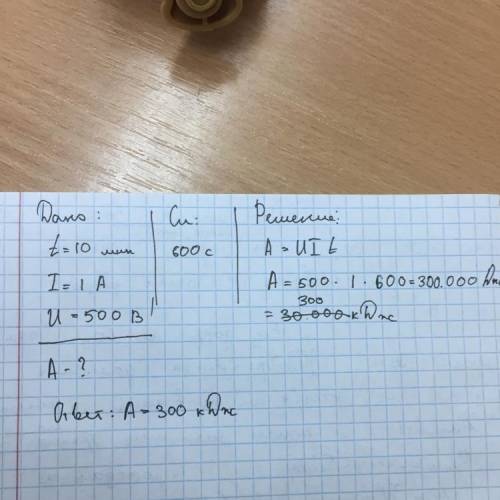 Дано:
t = 10 мин
I = 1 А
U = 500 В
А - ?
Си:
600 с
Решение:
А = UI t
А = 500 · 1 · 600 = 300.000 Дж
300
= 30 000 кДж
Ответ: А = 300 кДж